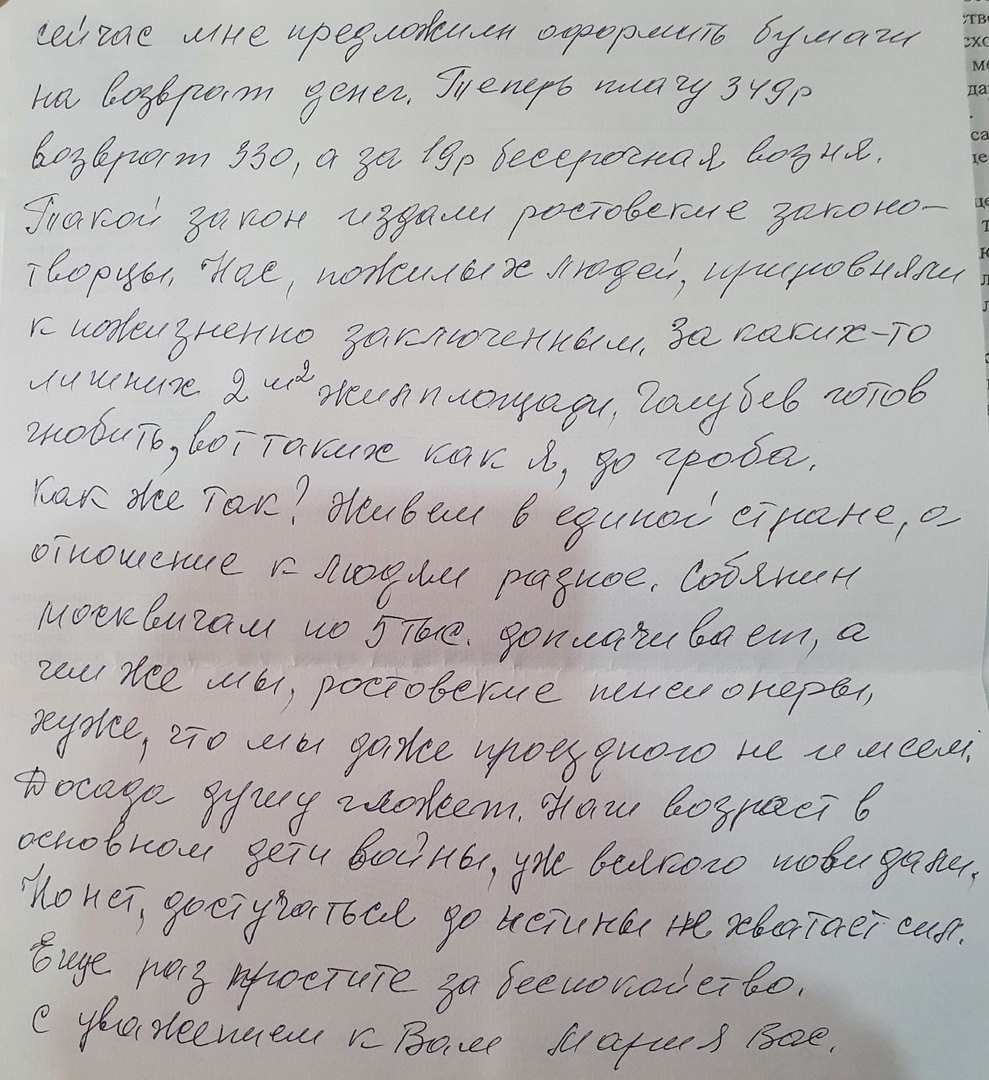 сейчас мне предложили оформить бумаги
на возврат денег. Теперь плачу 349р
возврат 330, а за 19р бессрочная возня.
Такой закон издали ростовские законо-
творцы. Нас, пожилых людей, прировняли
к пожизненно заключенным. За каких-то
лишних 2 м² жилплощади, Голубев готов
гнобить, вот таких как я, до гроба.
Как же так? Живем в единой стране, а
отношение к людям разное. Собянин
москвичам по 5 тыс. доплачивает, а
чем же мы, ростовские пенсионеры,
хуже, что мы даже проездного не имеем.
Досада душу гложет. Наш возраст в
основном дети войны, уж всякого повидали,
Но нет, достучаться до истины не хватает сил.
Еще раз простите за беспокойство.
С уважением к Вам Мария Вас.